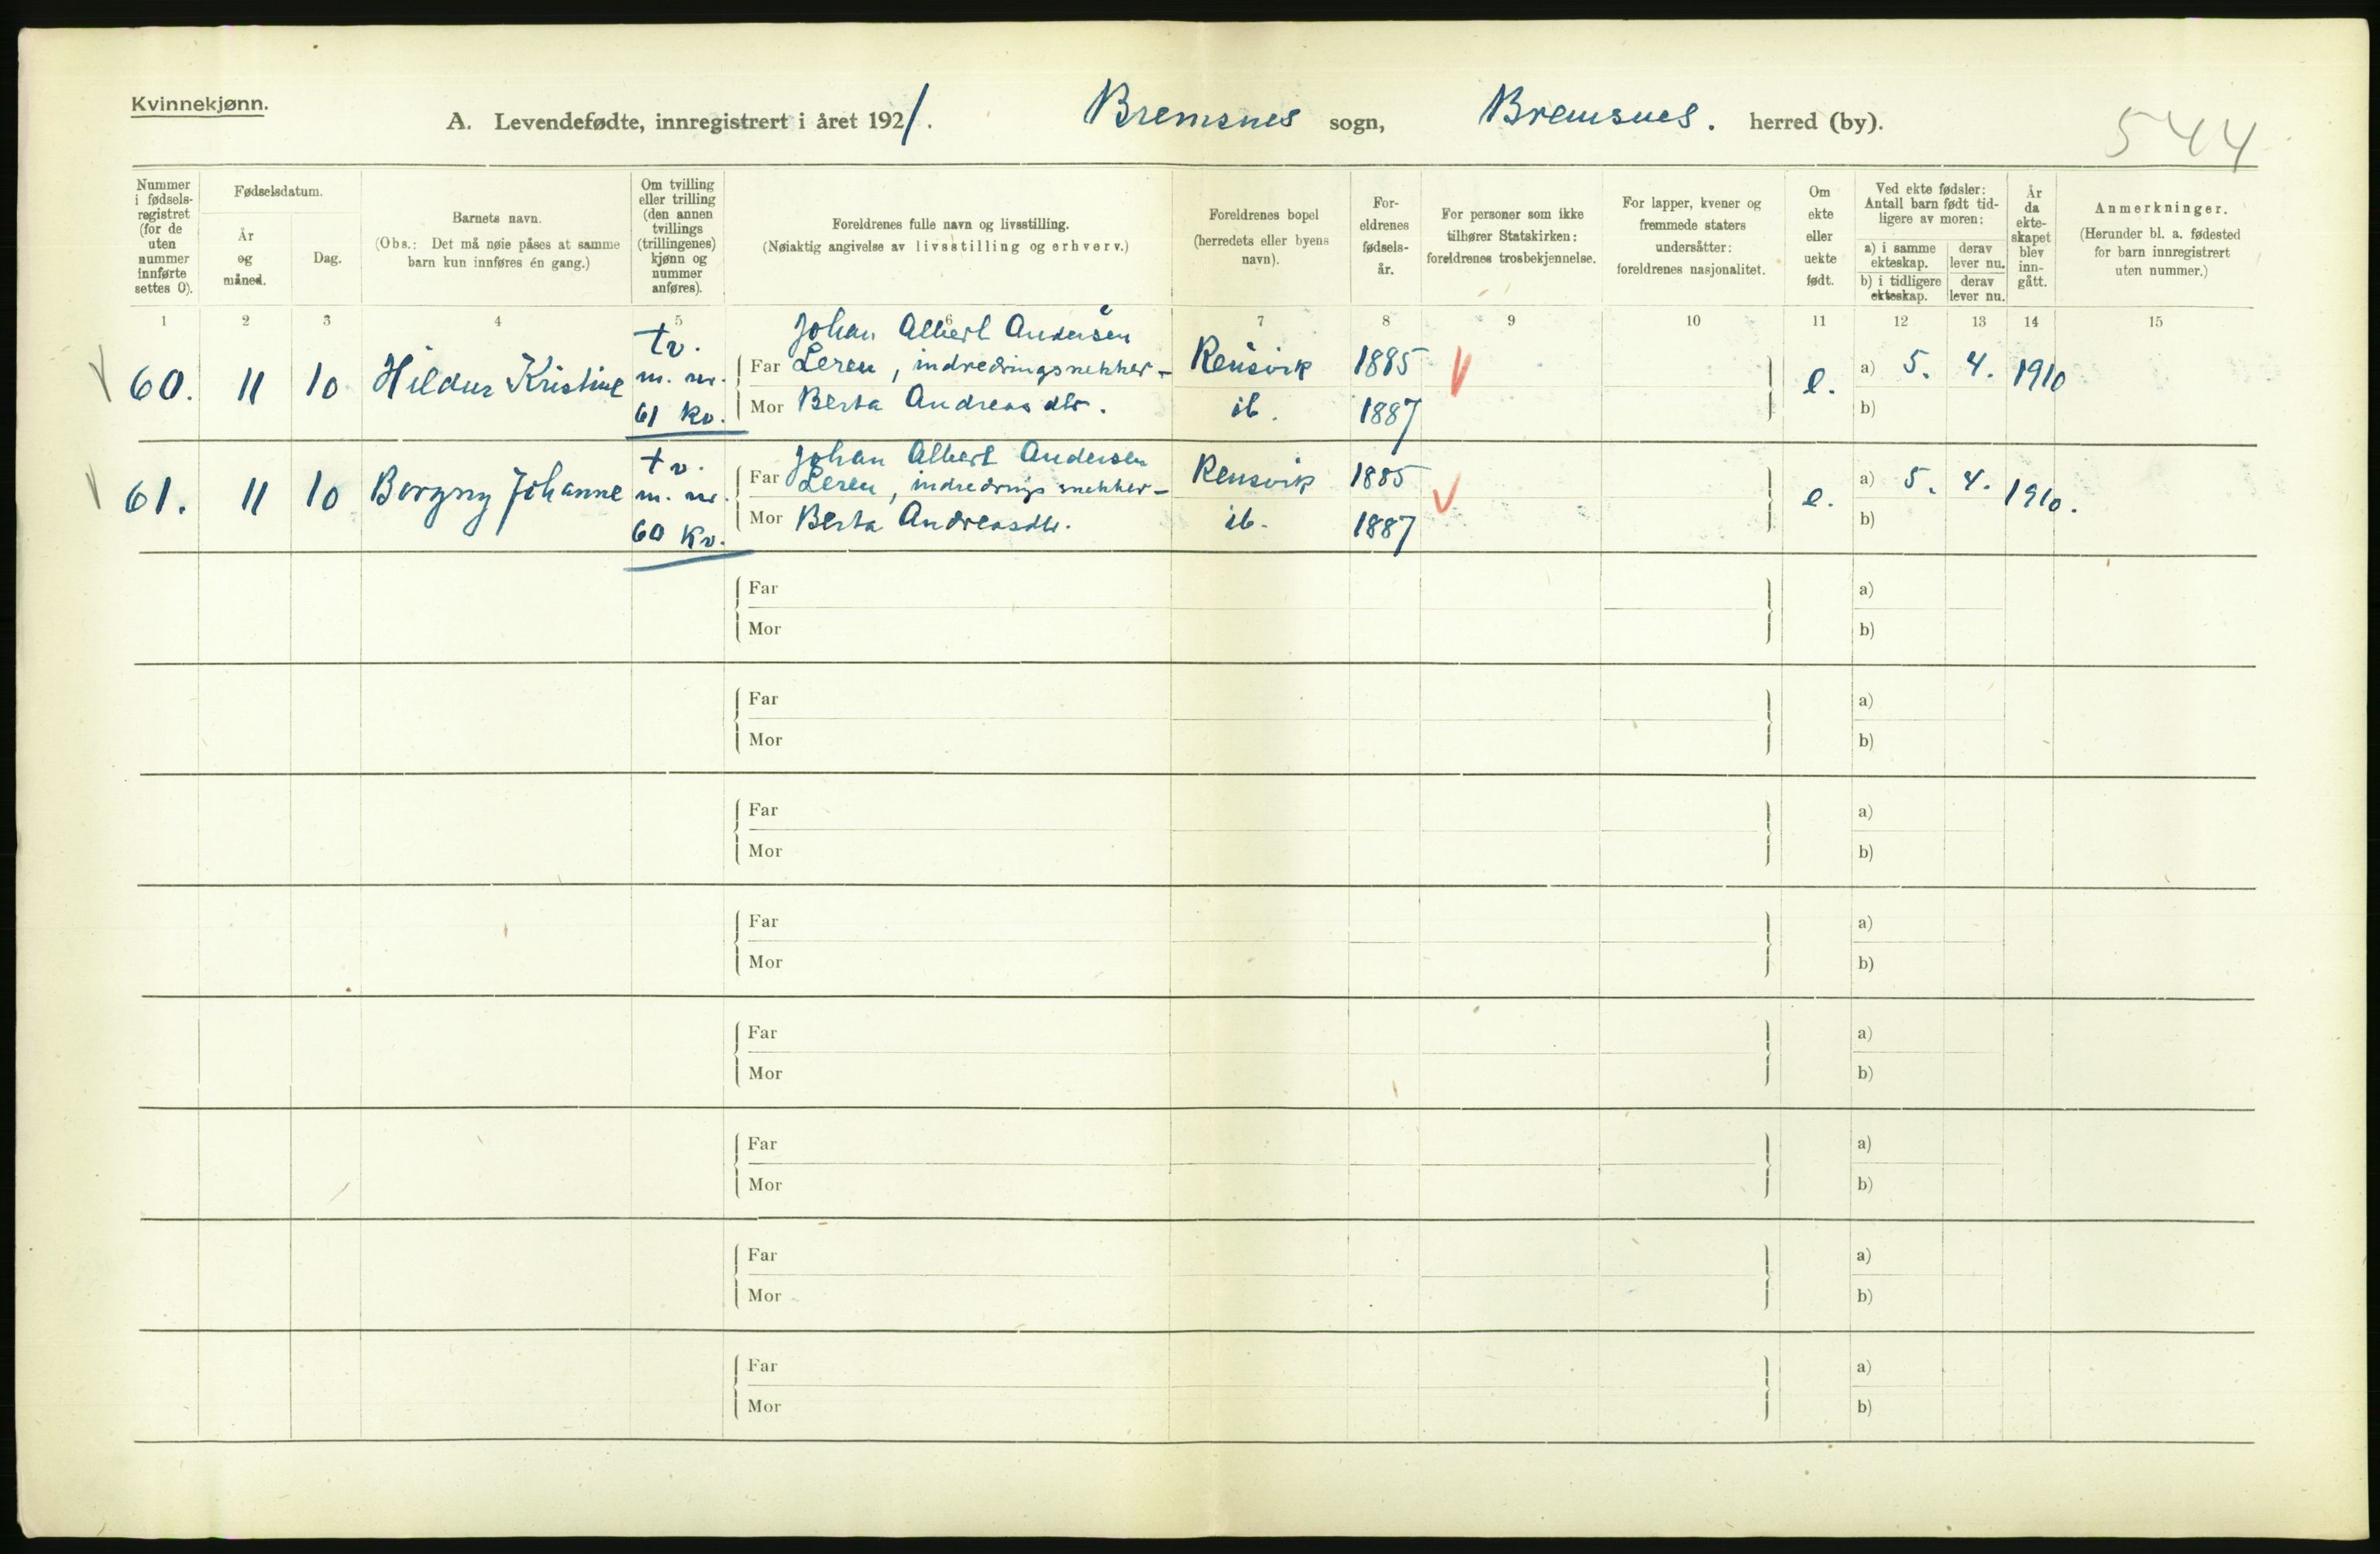 Kvinnekjønn.
A. Levendefødte, innregistrert i året 1921. Bremsnes sogn, Bremsnes. herred (by).
544
Nummer i fødsels-registret (for de uten nummer innførte settes 0).
Fødselsdatum.
År og måned.
Dag.
Barnets navn.
(Obs.: Det må nøie påses at samme barn kun innføres én gang.)
Om tvilling eller trilling (den annen tvillings (trillingenes) kjønn og nummer anføres).
Foreldrenes fulle navn og livsstilling.
(Nøiaktig angivelse av livsstilling og erhverv.)
Foreldrenes bopel (herredets eller byens navn).
For-eldrenes fødsels-år.
For personer som ikke tilhører Statskirken: foreldrenes trosbekjennelse.
For lapper, kvener og fremmede staters undersåtter: foreldrenes nasjonalitet.
Om ekte eller uekte født.
Ved ekte fødsler: Antall barn født tid-ligere av moren:
a) i samme ekteskap.
derav lever nu.
b) i tidligere ekteskap.
derav lever nu.
År da ekte-skapet blev inn-gått.
Anmerkninger.
(Herunder bl. a. fødested for barn innregistrert uten nummer.)
1 2 3 4 5 6 7 8 9 10 11 12 13 14 15
60. 11 10 Hildur Kristine
tv.
m. nr.
61 kv.
Johan Albert Andersen
Far Leren, indredningsnekker- Rensvik 1885
Mor Berta Andreasdtr. ib. 1887
e. a) 5. 4. 1910
b)
61. 11 10 Borgny Johanne
tv.
m. nr.
60 kv.
Johan Albert Andersen
Far Leren, indrednings snekker- Rensvik 1885
Mor Berta Andreasdtr. ib. 1887
e. a) 5. 4. 1910.
b)
Far a)
Mor b)
Far a)
Mor b)
Far a)
Mor b)
Far a)
Mor b)
Far a)
Mor b)
Far a)
Mor b)
Far a)
Mor b)
Far a)
Mor b)